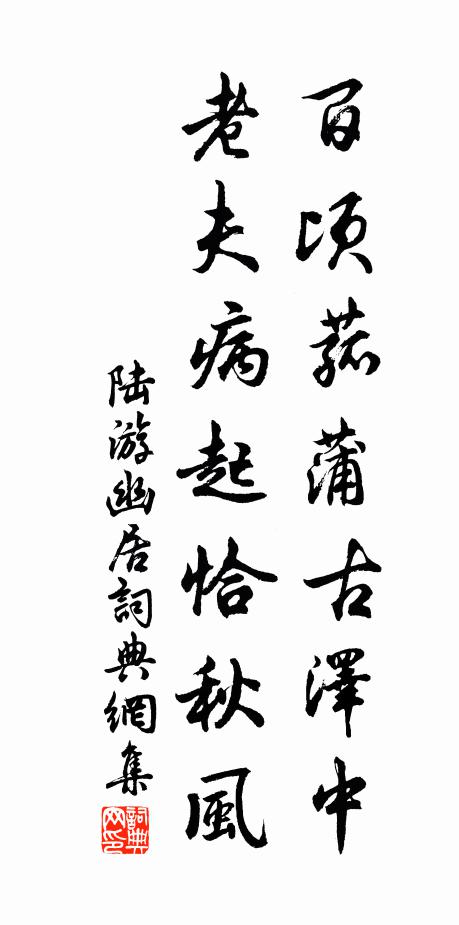 百頃菰蒲古澤中
老夫病起恰秋風
陆游幽居詞典網集
詞典网印